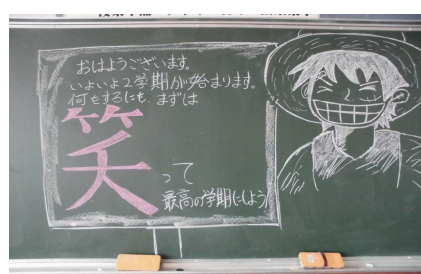 おはようございます。
いよいよ2学期が始まります。
何をするにも、まずは
笑って
最高の学期にしよう